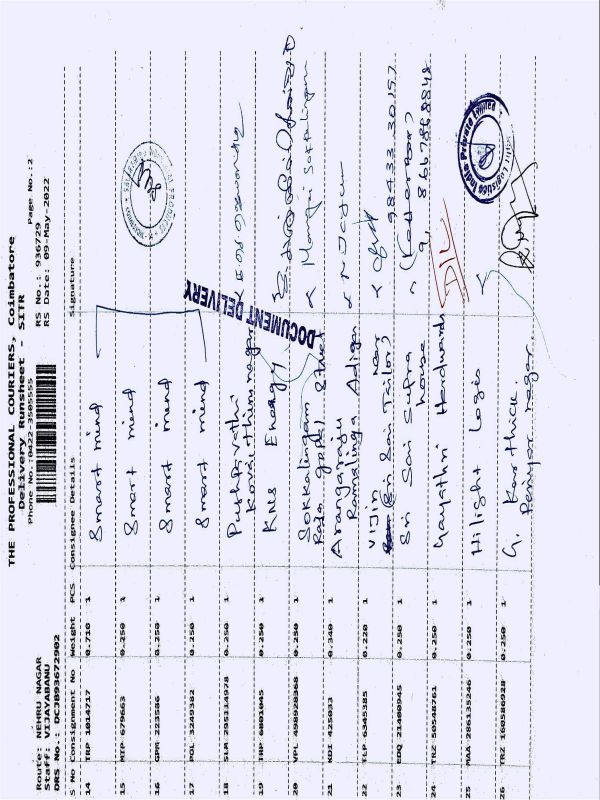 THE PROFESSIONAL COURIERS, Coimbatore
Delivery Runsheet - SITR
Phone No.:0422-3505555
Route: NEHRU NAGAR
Staff: VIJAYABANU
DRS No.: DCJB93672902
RS No.: 936729 Page No.:2
RS Date: 09-May-2022
S No Consignment No Weight PCS Consignee Details Signature
14 TRP 1014717 0.710 1 Smart mind
15 MIP 679663 0.250 1 Smart mind
16 GPM 223586 0.250 1 Smart mind
17 POL 3249382 0.250 1 Smart mind
18 SLM 295114978 0.250 1 Pushpavathi
Kovaithirunagar
19 TRP 6801045 0.250 1 KNS Energy
20 VPL 498928368 0.250 1 Sokkalingam
Raja gopal street
Mangai Sokkalingam
21 KDI 425033 0.340 1 Arangaraju
Ramalinga Adigar
22 TEP 6345385 0.220 1 Vijin
(Sri Sai Tailor)
98433 30157
23 EDQ 21400945 0.250 1 Sri Sai Supra
house
8667868848
24 TRZ 50548761 0.250 1 Gayathri Hardwards
D/L
25 MAA 286135246 0.250 1 Hilight Logis
26 TRZ 160586928 0.250 1 G. Karthick
Periyar nagar
DOCUMENT DELIVERY
Logistics India Private Limited